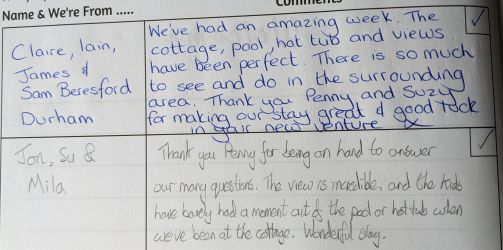 Name & We're From ..... Comments
Claire, Iain,
James &
Sam Beresford
Durham
We've had an amazing week. The
cottage, pool, hot tub and views
have been perfect. There is so much
to see and do in the surrounding
area. Thank you Penny and Suzy
for making our stay great & good luck
in your new venture x
Jon, Su &
Mila
Thank you Penny for being on hand to answer
our many questions. The view is incredible, and the kids
have barely had a moment out of the pool or hot tub when
we've been at the cottage. Wonderful stay.